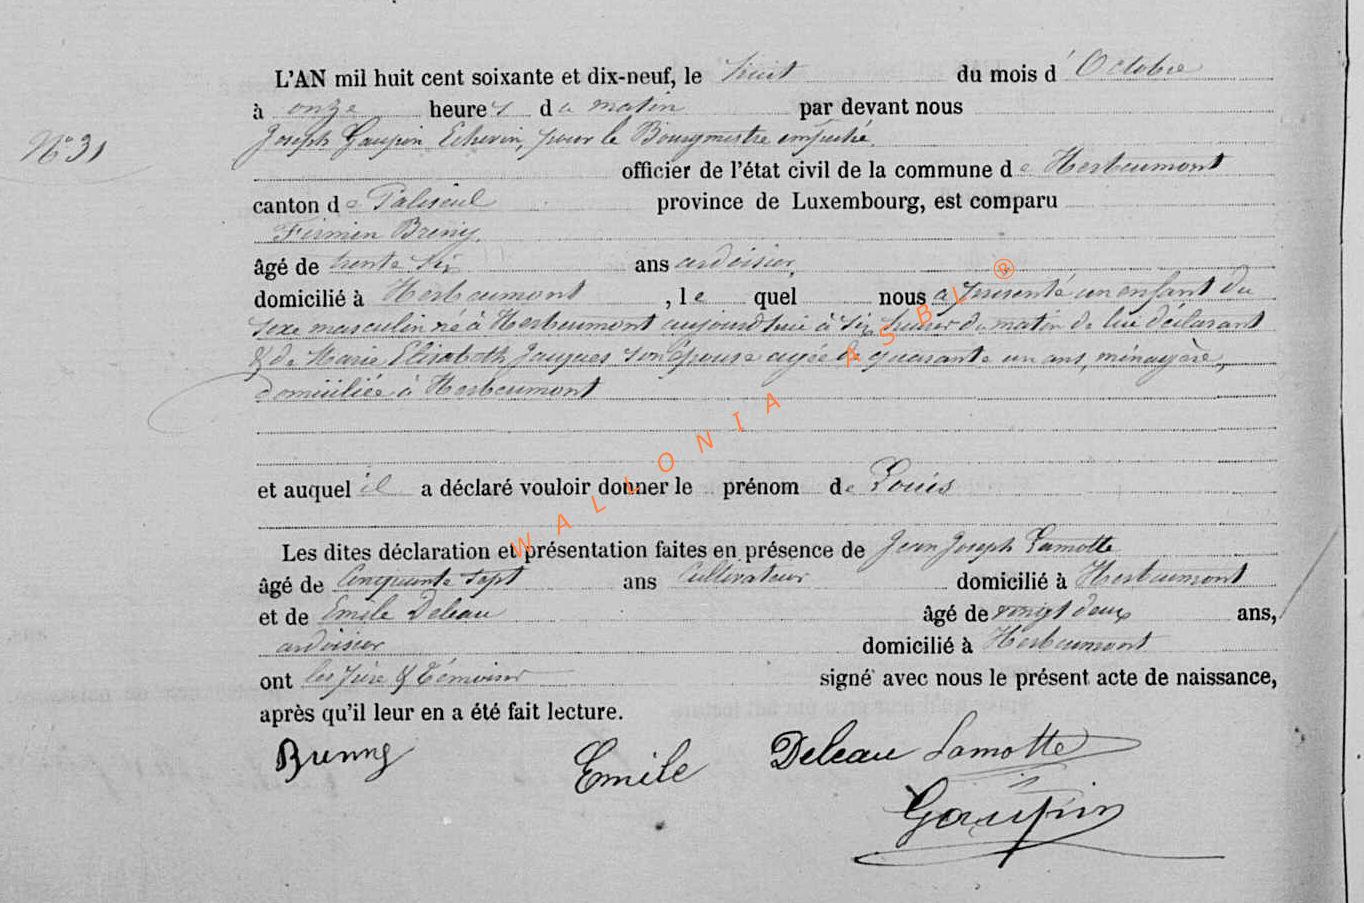 L'AN mil huit cent soixante et dix-neuf, le huit du mois d' Octobre
à onze heures du matin par devant nous
Joseph Gaupin Echevin, pour le Bourgmestre empêché
N° 31
officier de l'état civil de la commune de Herbeumont
canton de Paliseul province de Luxembourg, est comparu
Firmin Breny
âgé de trente six ans ardoisier,
domicilié à Herbeumont, le quel nous a présenté un enfant du
sexe masculin né à Herbeumont aujourd'hui à six heures du matin de lui déclarant
& de Marie Elisabeth Jacques son épouse agée de quarante un ans, ménagère,
domiciliée à Herbeumont
et auquel il a déclaré vouloir donner le prénom de Louis
Les dites déclaration et présentation faites en présence de Jean Joseph Lamotte
âgé de Cinquante sept ans Cultivateur domicilié à Herbeumont
et de Emile Deleau âgé de vingt deux ans,
ardoisier domicilié à Herbeumont
ont les père & témoins signé avec nous le présent acte de naissance,
après qu'il leur en a été fait lecture.
Emile Deleau Lamotte
Gaupin
WALLONIA ASBL ®